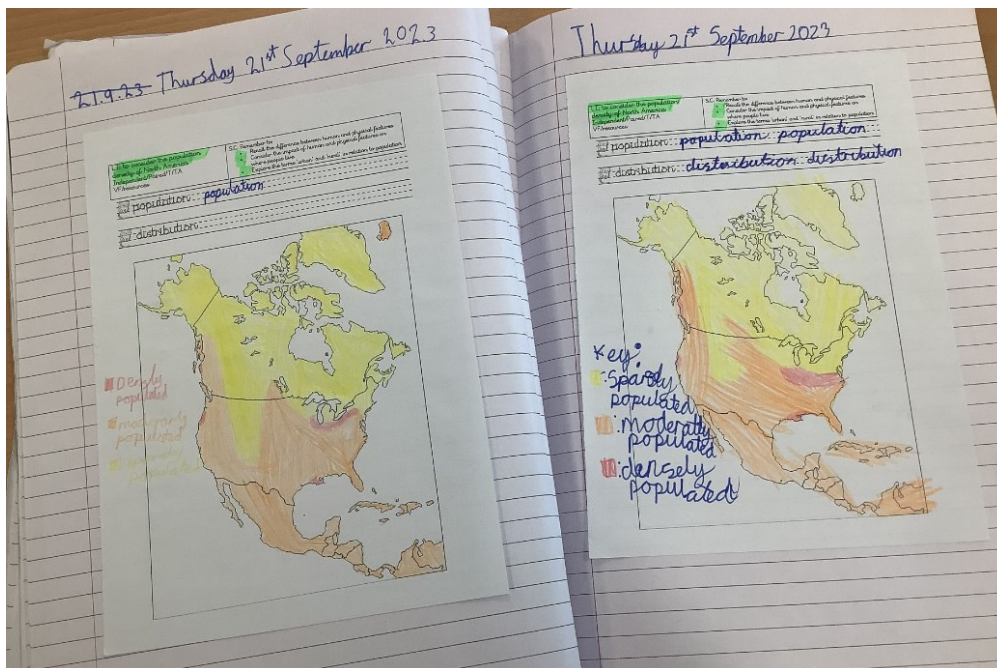 21.9.23 Thursday 21st September 2023
L.I. to consider the population
density of North America
Independent/Paired/T/TA
VF/resources
S.C. Remember to:
Recall the difference between human and physical features
Consider the impact of human and physical features on
where people live
Explore the terms 'urban' and 'rural' in relation to population
population: population
distribution:
Densly
populated
moderatly
populated
sparsely
populated
Thursday 21st September 2023
L.I. to consider the population
density of North America
Independent/Paired/T/TA
VF/resources
S.C. Remember to:
Recall the difference between human and physical features
Consider the impact of human and physical features on
where people live
Explore the terms 'urban' and 'rural' in relation to population
population: population population
distribution: distribution distribution
Key:
: Sparsely
populated
: moderatly
populated
: densely
populated